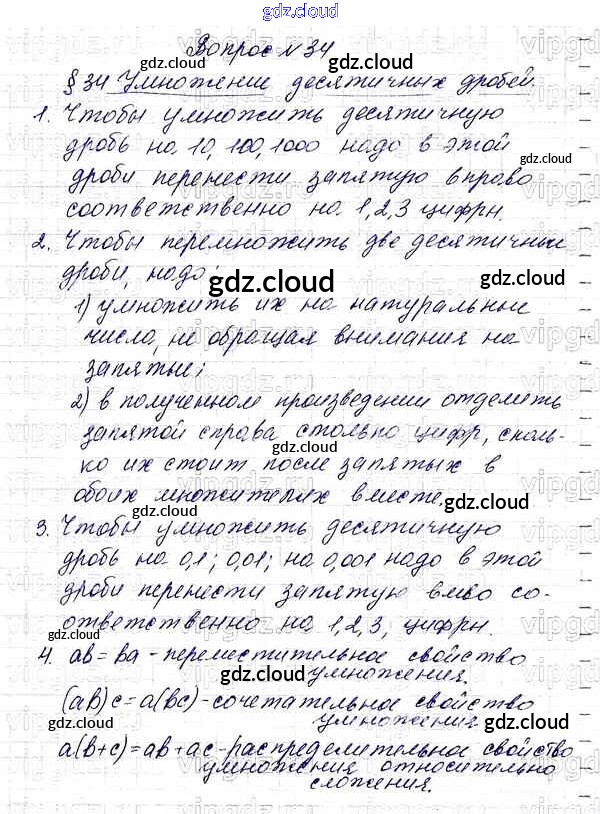 gdz.cloud
Вопрос № 34
§ 34 Умножение десятичных дробей.
1. Чтобы умножить десятичную
дробь на 10, 100, 1000 надо в этой
дроби перенести запятую вправо
соответственно на 1, 2, 3 цифры.
2. Чтобы перемножить две десятичные
дроби, надо:
1) умножить их на натуральные
числа, не обращая внимания на
запятые;
2) в полученном произведении отделить
запятой справа столько цифр, сколь-
ко их стоит после запятых в
обоих множителях вместе.
3. Чтобы умножить десятичную
дробь на 0,1; 0,01; на 0,001 надо в этой
дроби перенести запятую влево со-
ответственно на 1, 2, 3, цифры.
4. ab = ba - переместительное свойство
умножения.
(ab)c = a(bc) - сочетательное свойство
умножения
a(b+c) = ab + ac - распределительное свойство
умножения относительно
сложения.